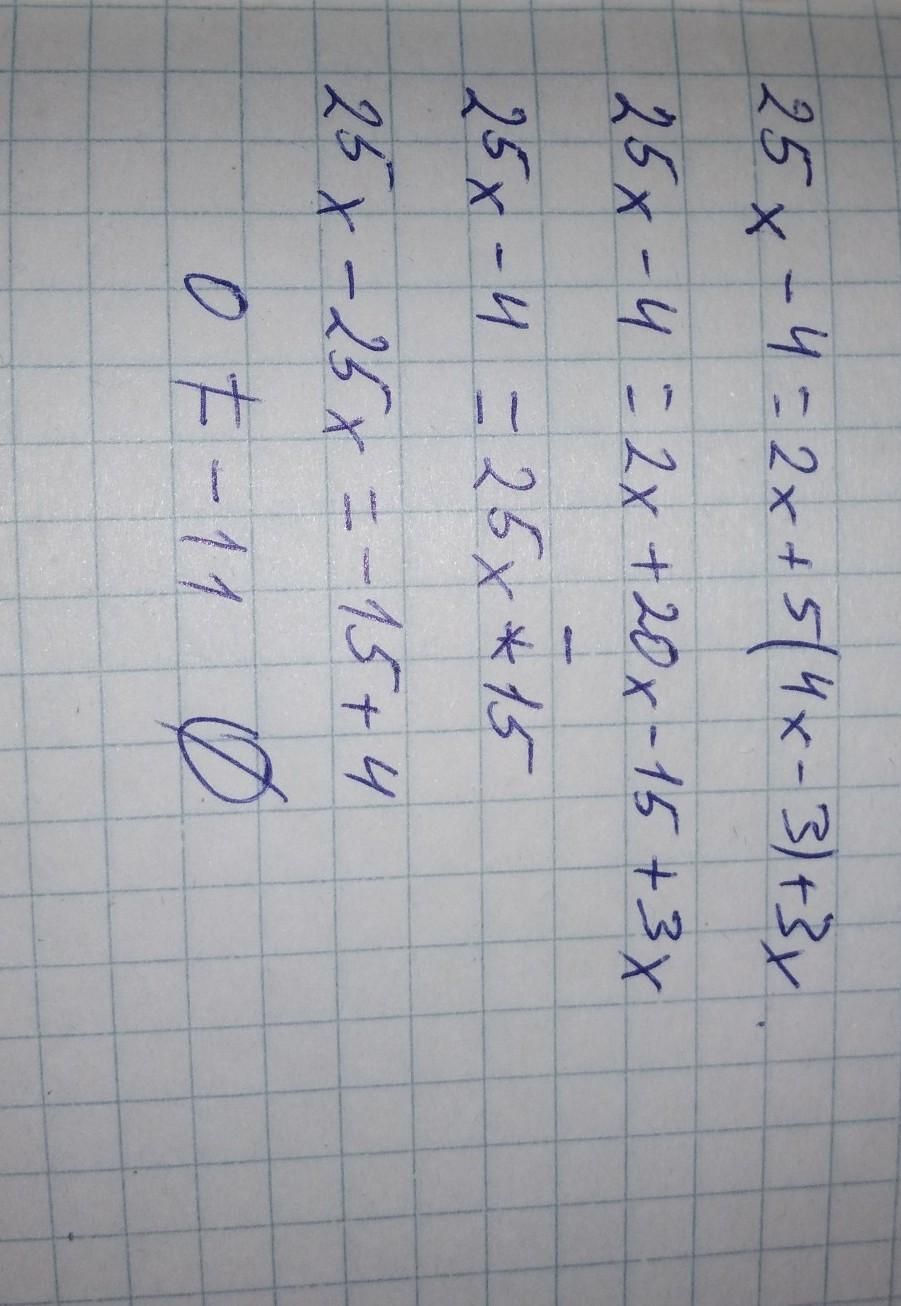 25x - 4 = 2x + 5(4x - 3) + 3x
25x - 4 = 2x + 20x - 15 + 3x
25x - 4 = 25x - 15
25x - 25x = -15 + 4
0 ≠ -11 ∅